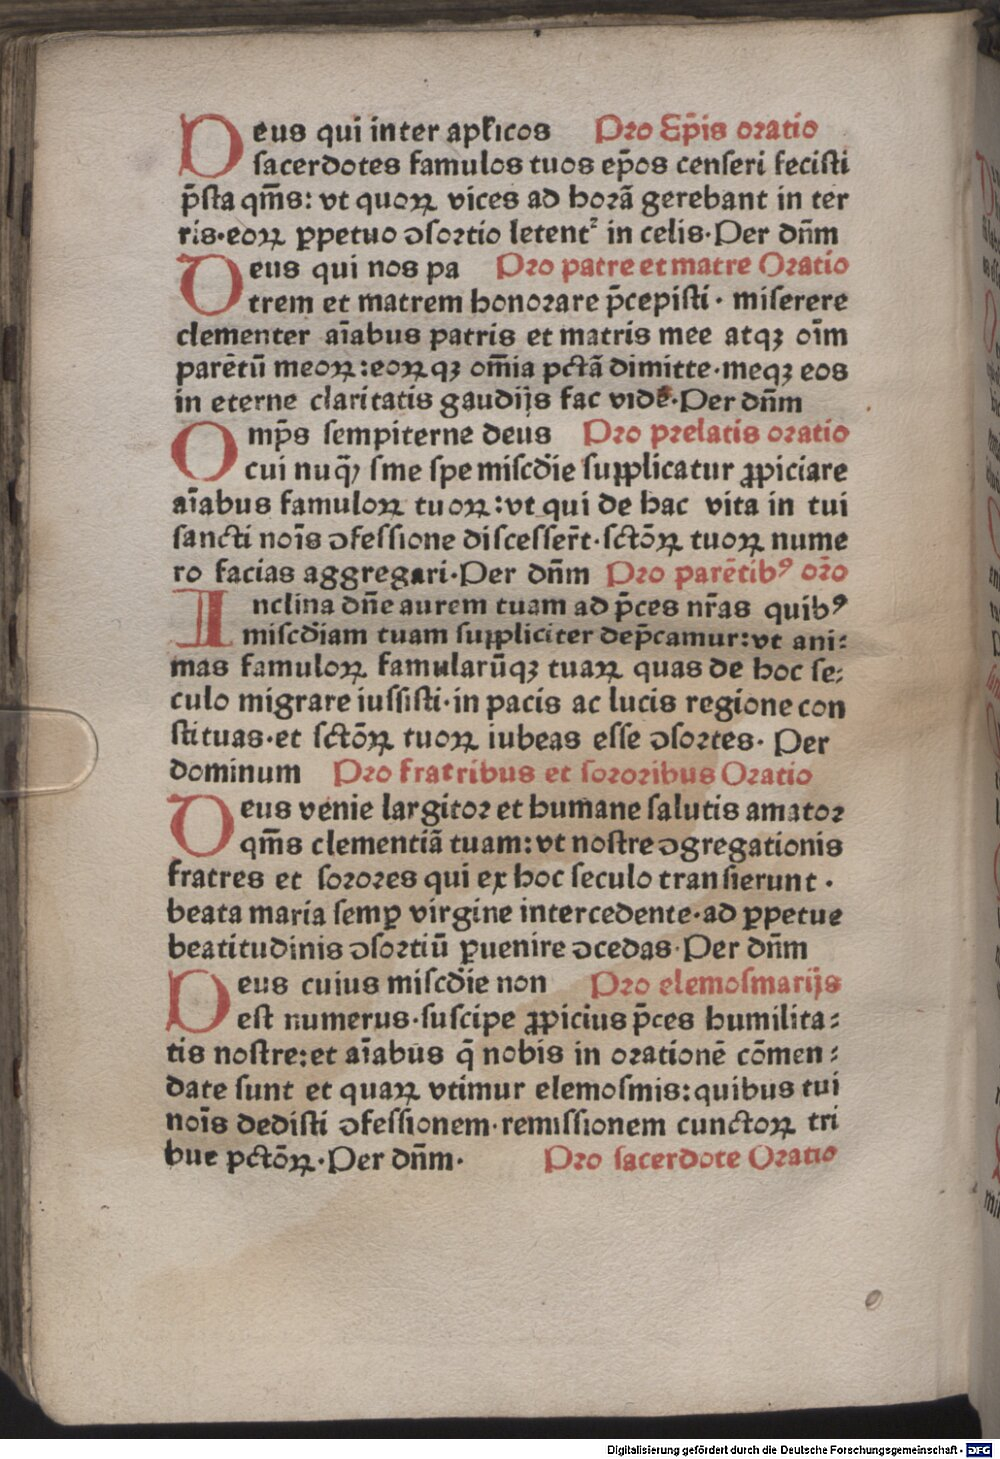 Deus qui inter apl̃icos Pro Ep̃is oratio
sacerdotes famulos tuos ep̃os censeri fecisti
p̃sta qm̃s: vt quoꝝ vices ad horã gerebant in ter
ris·eoꝝ ꝑpetuo ↄsortio letentᷣ in celis·Per dñm
Deus qui nos pa Pro patre et matre Oratio
trem et matrem honorare p̃cepisti· miserere
clementer aĩabus patris et matris mee atqꝫ oĩm
parẽtũ meoꝝ:eoꝝqꝫ om̃ia pctã dimitte·meqꝫ eos
in eterne claritatis gaudijs fac vidẽ·Per dñm
Omp̃s sempiterne deus Pro prelatis oratio
cui nuq̃ȝ sine spe misc̃die supplicatur ꝓpiciare
aĩabus famuloꝝ tuoꝝ:vt qui de hac vita in tui
sancti noĩs ↄfessione discesser̃t·sctõꝝ tuoꝝ nume
ro facias aggregari·Per dñm Pro parẽtibꝰ or̃o
Inclina dñe aurem tuam ad p̃ces nr̃as quibꝰ
misc̃diam tuam suppliciter dep̃camur:vt ani⸗
mas famuloꝝ famularũqꝫ tuaꝝ quas de hoc se⸗
culo migrare iussisti·in pacis ac lucis regione con
stituas·et sctõꝝ tuoꝝ iubeas esse ↄsortes· Per
dominum Pro fratribus et sororibus Oratio
Deus venie largitor et humane salutis amator
qm̃s clementiã tuam:vt nostre ↄgregationis
fratres et sorores qui ex hoc seculo transierunt·
beata maria semꝑ virgine intercedente·ad ꝑpetue
beatitudinis ↄsortiũ ꝑuenire ↄcedas·Per dñm
Deus cuius misc̃die non Pro elemosinarijs
est numerus·suscipe ꝓpicius p̃ces humilita⸗
tis nostre:et aĩabus q̃ nobis in orationẽ cõmen⸗
date sunt et quaꝝ vtimur elemosinis:quibus tui
noĩs dedisti ↄfessionem·remissionem cunctoꝝ tri
bue pctõꝝ·Per dñm· Pro sacerdote Oratio
Digitalisierung gefördert durch die Deutsche Forschungsgemeinschaft - DFG